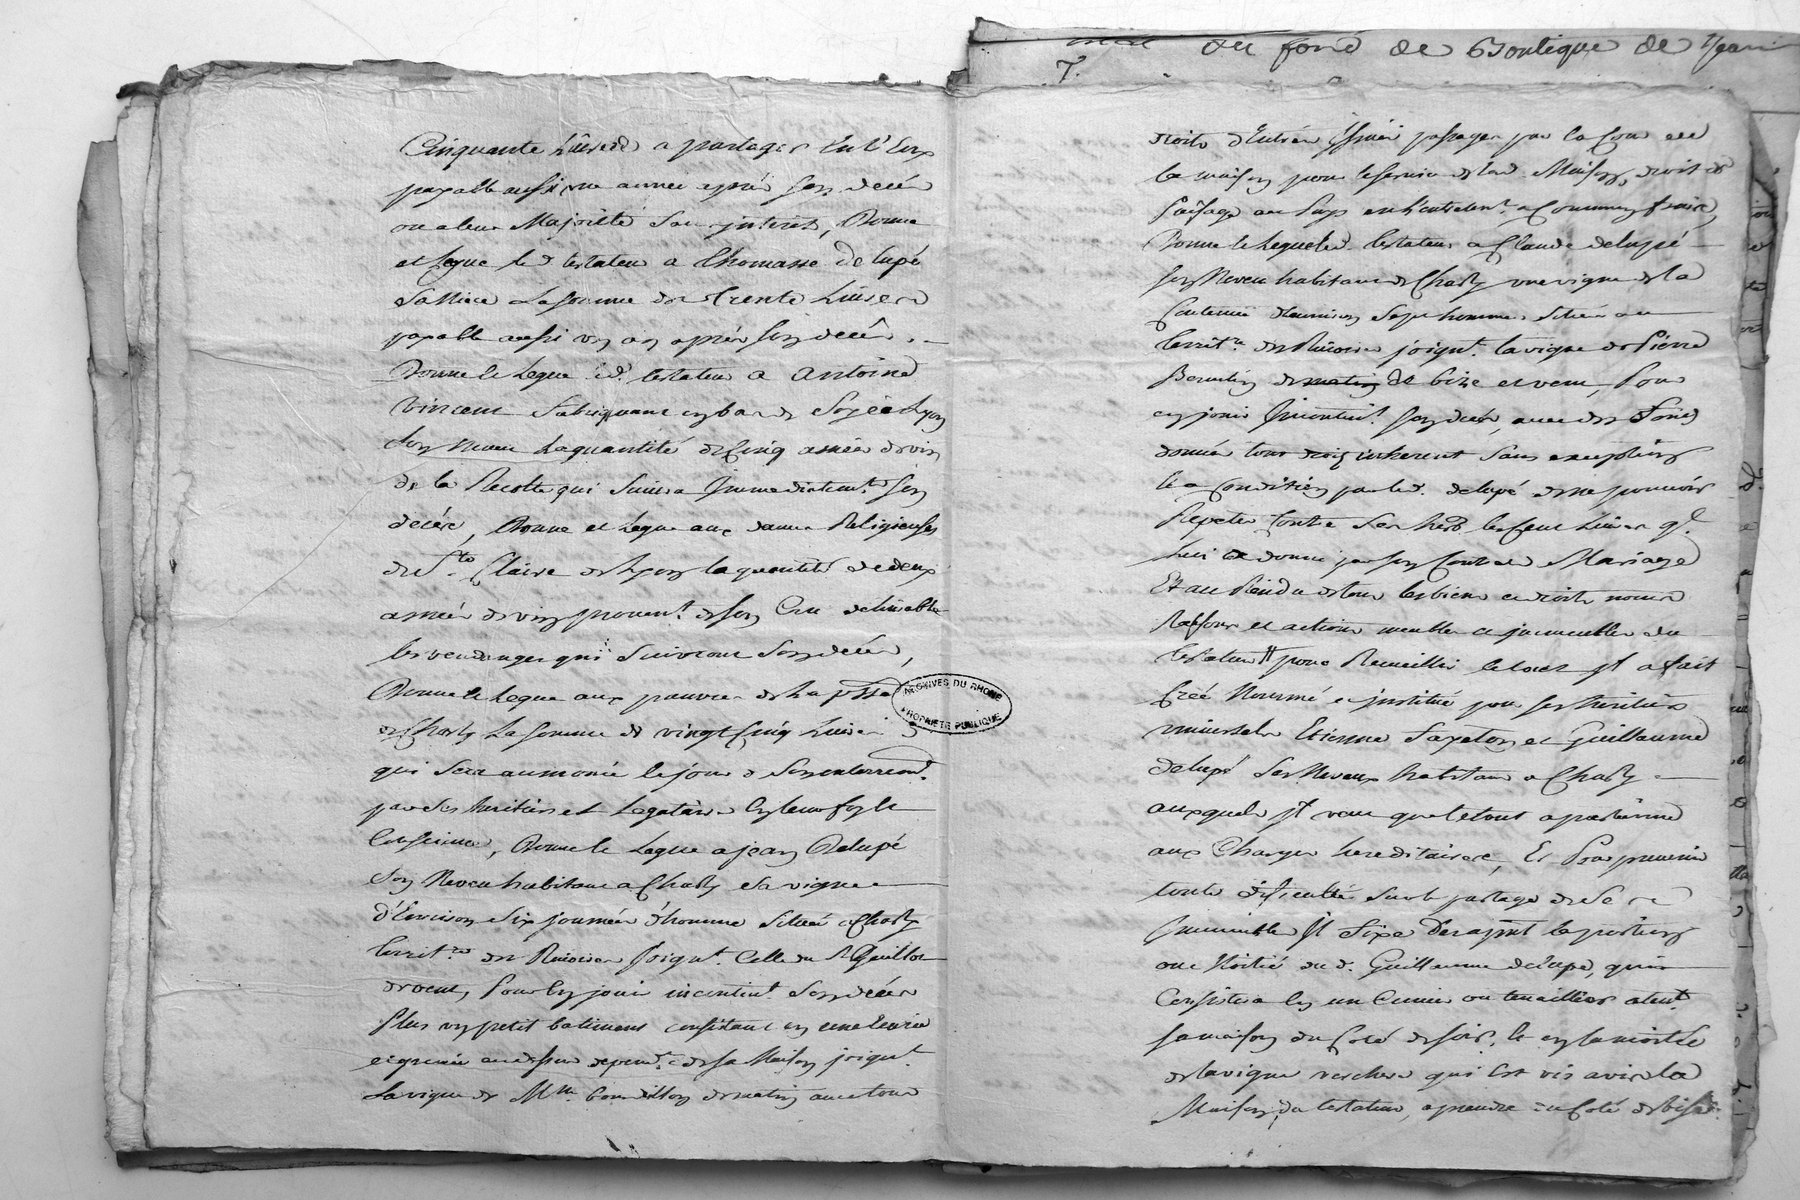 du fond de Boutique de Jean
7.
Cinquante Livres a partager Entr'Eux
payable aussi une année après son decés
ou a leur Majorité sans interest, Donne
et Legue led. testateur a thomasse Delupé
sa Niece La somme de trente Livres
payable aussi un an après son decês. -
Donne & Legue led. testateur a antoine
Vincent fabriquant en bas de Soye a Lyon
son neveu La quantité de Cinq asnées de vin
de la Recolte qui suivra Immediatemt. son
decés, Donne et Legue aux dames Religieuses
de Ste. Claire de Lyon la quantité de deux
asnées de vin provent. de son Cru delivrable
les vendanges qui suivront son decés,
Donne & Legue aux pauvres de La psse
de Charly La somme de vingt Cinq Livres
qui sera aumonée le jour de son enterremt.
par ses heritiers et Legataires En leur foy &
Conscience, Donne & Legue a jean Delupé
son Neveu habitant a Charly sa vigne
d'Environ six journées d'homme située a Charly
territre. de Ruivire joignt. Celle du Sr Guillot
de vent, Pour En jouir incontint. son decés
Plus un petit batiment consistant en une Ecurie
et grenie au dessus dependt. de sa Maison joignt.
La vigne de Mr. Bourdillon de matin avec tous
droits d'Entrée Issuée passage par la Cour de
la maison pour le service de lad. Maison, droit de
Puisage au Puys en l'entretent. a Communs fraix,
Donne & Legue led. testateur a Claude delupé
son Neveu habitant de Charly une vigne de la
Contenue d'environ sept hommes située au
territre. de Ruivire joignt. la vigne de Pierre
de matin de bize et vent, Pour
en jouir Incontint. son decés, avec des fonds
donnés tous droits inherent Sans exception
& a Condition par led. delupé de ne pouvoir
Repeter Contre Ses hers. les Cent Livres ql.
lui a donné par son Contract de Mariage
Et au Residu de tous les biens et droits noms
Raisons et actions meubles et immeubles du
testateur pour Recueillir le tout Il a fait
Créé Nommé et institué pour ses heritiers
universels Etienne Sapeton et Guillaume
delupé Ses Neveux habitans a Charly -
auxquels Il veut que le tout apartienne
aux Charges hereditaires, Et Pour prevenir
toute dificulté sur le partage de Ses
Immeubles Il Fixe Des apnt la portion
ou Moitié du d. Guillaume delupé, qui
Consistera En un Cuvier ou tenaillier atent.
sa maison du Coté de soir, & en la moitié
de la vigne verchere qui Est vis avis la
Maison du testateur, a prendre du Coté de bise
ARCHIVES DU RHONE
PROPRIÉTÉ PUBLIQUE